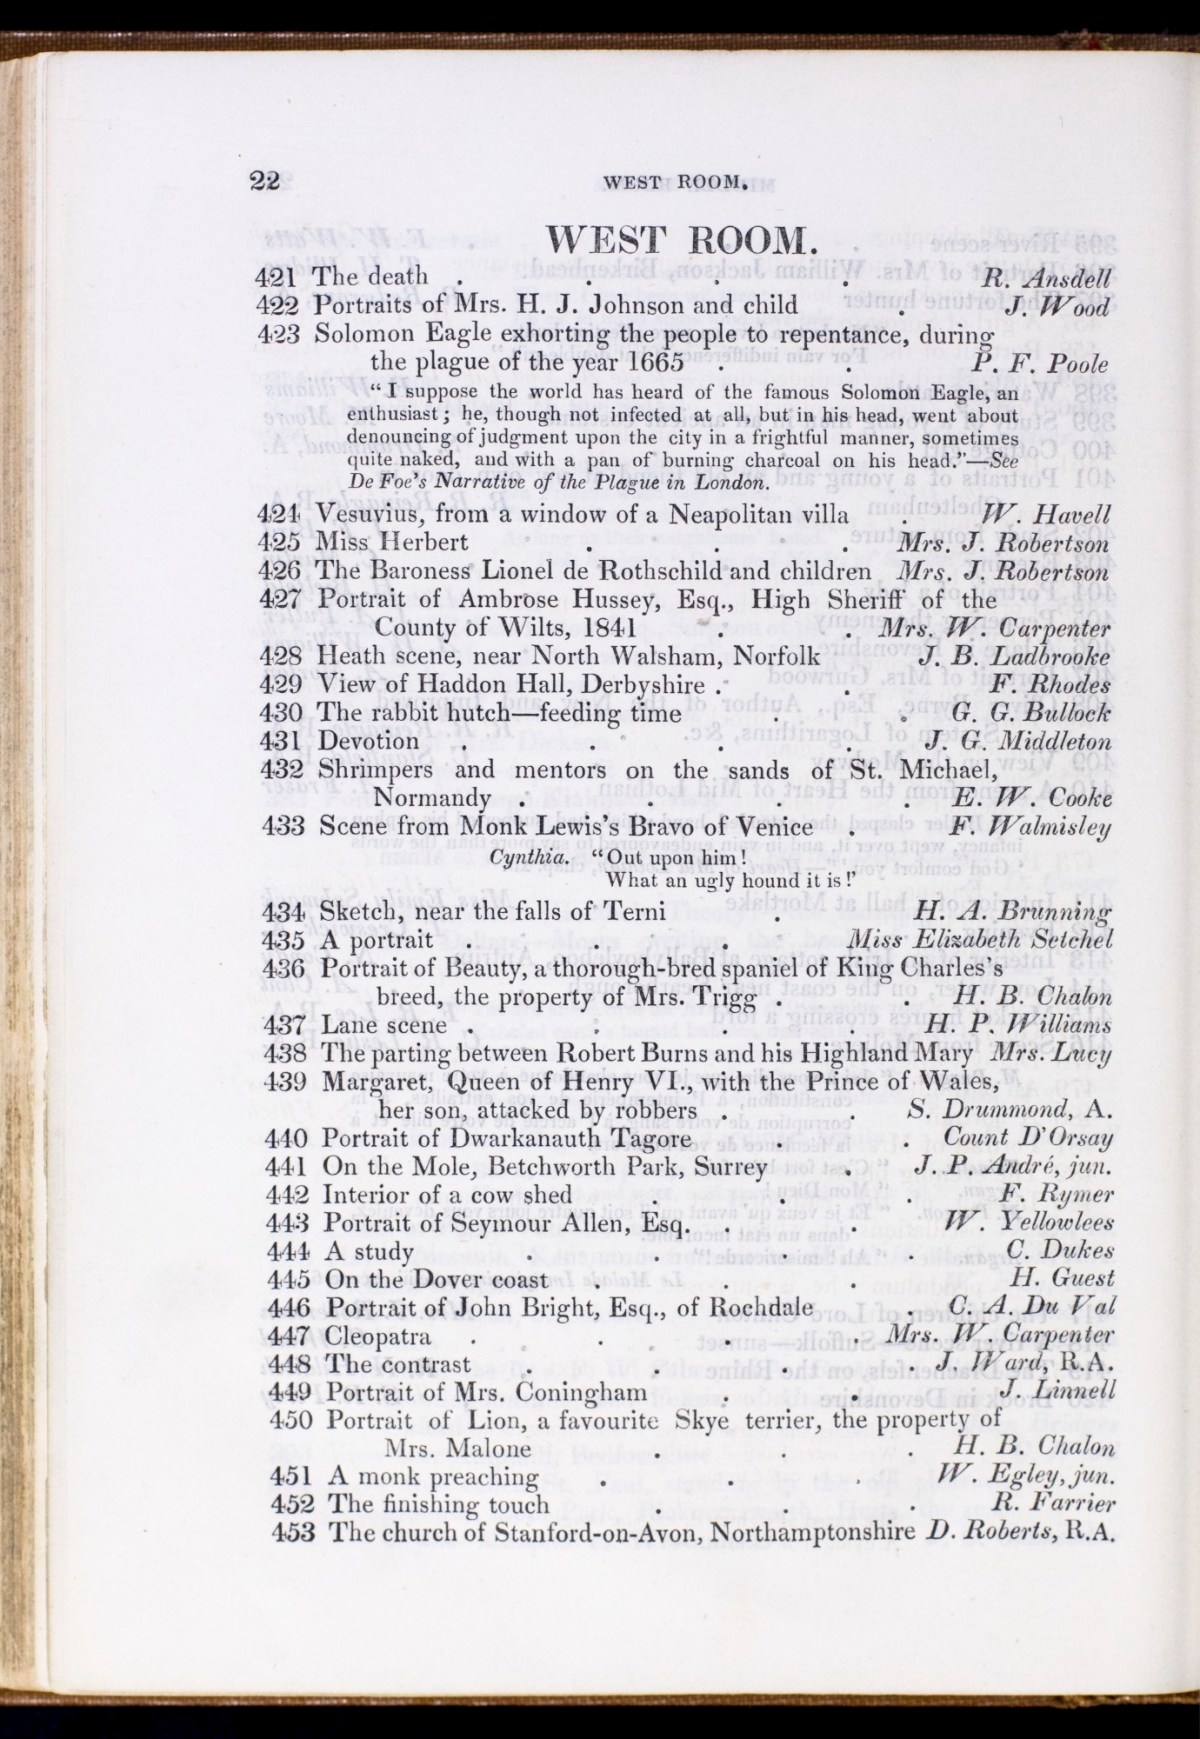 22
WEST ROOM.
WEST ROOM.
421 The death . . . . R. Ansdell
422 Portraits of Mrs. H. J. Johnson and child . J. Wood
423 Solomon Eagle exhorting the people to repentance, during
the plague of the year 1665 . . P. F. Poole
“I suppose the world has heard of the famous Solomon Eagle, an
enthusiast; he, though not infected at all, but in his head, went about
denouncing of judgment upon the city in a frightful manner, sometimes
quite naked, and with a pan of burning charcoal on his head.”—See
De Foe’s Narrative of the Plague in London.
424 Vesuvius, from a window of a Neapolitan villa . W. Havell
425 Miss Herbert . . . Mrs. J. Robertson
426 The Baroness Lionel de Rothschild and children Mrs. J. Robertson
427 Portrait of Ambrose Hussey, Esq., High Sheriff of the
County of Wilts, 1841 . . Mrs. W. Carpenter
428 Heath scene, near North Walsham, Norfolk J. B. Ladbrooke
429 View of Haddon Hall, Derbyshire . . F. Rhodes
430 The rabbit hutch—feeding time . . G. G. Bullock
431 Devotion . . . . J. G. Middleton
432 Shrimpers and mentors on the sands of St. Michael,
Normandy . . . . E. W. Cooke
433 Scene from Monk Lewis’s Bravo of Venice . F. Walmisley
Cynthia. “Out upon him!
What an ugly hound it is!’
434 Sketch, near the falls of Terni . H. A. Brunning
435 A portrait . . . Miss Elizabeth Setchel
436 Portrait of Beauty, a thorough-bred spaniel of King Charles’s
breed, the property of Mrs. Trigg . . H. B. Chalon
437 Lane scene . . . . H. P. Williams
438 The parting between Robert Burns and his Highland Mary Mrs. Lucy
439 Margaret, Queen of Henry VI., with the Prince of Wales,
her son, attacked by robbers . . S. Drummond, A.
440 Portrait of Dwarkanauth Tagore . . Count D’Orsay
441 On the Mole, Betchworth Park, Surrey . J. P. André, jun.
442 Interior of a cow shed . . . F. Rymer
443 Portrait of Seymour Allen, Esq. . . W. Yellowlees
444 A study . . . . C. Dukes
445 On the Dover coast . . . H. Guest
446 Portrait of John Bright, Esq., of Rochdale . C. A. Du Val
447 Cleopatra . . . . Mrs. W. Carpenter
448 The contrast . . . . J. Ward, R.A.
449 Portrait of Mrs. Coningham . . J. Linnell
450 Portrait of Lion, a favourite Skye terrier, the property of
Mrs. Malone . . . H. B. Chalon
451 A monk preaching . . . W. Egley, jun.
452 The finishing touch . . . R. Farrier
453 The church of Stanford-on-Avon, Northamptonshire D. Roberts, R.A.